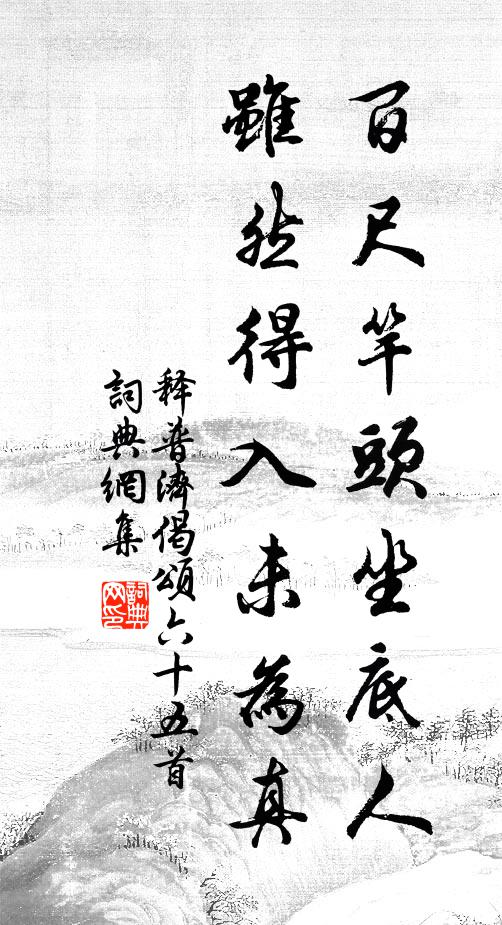 百尺竿頭坐底人
雖然得入未為真
释普濟偈頌六十五首
詞典網集
詞典网印